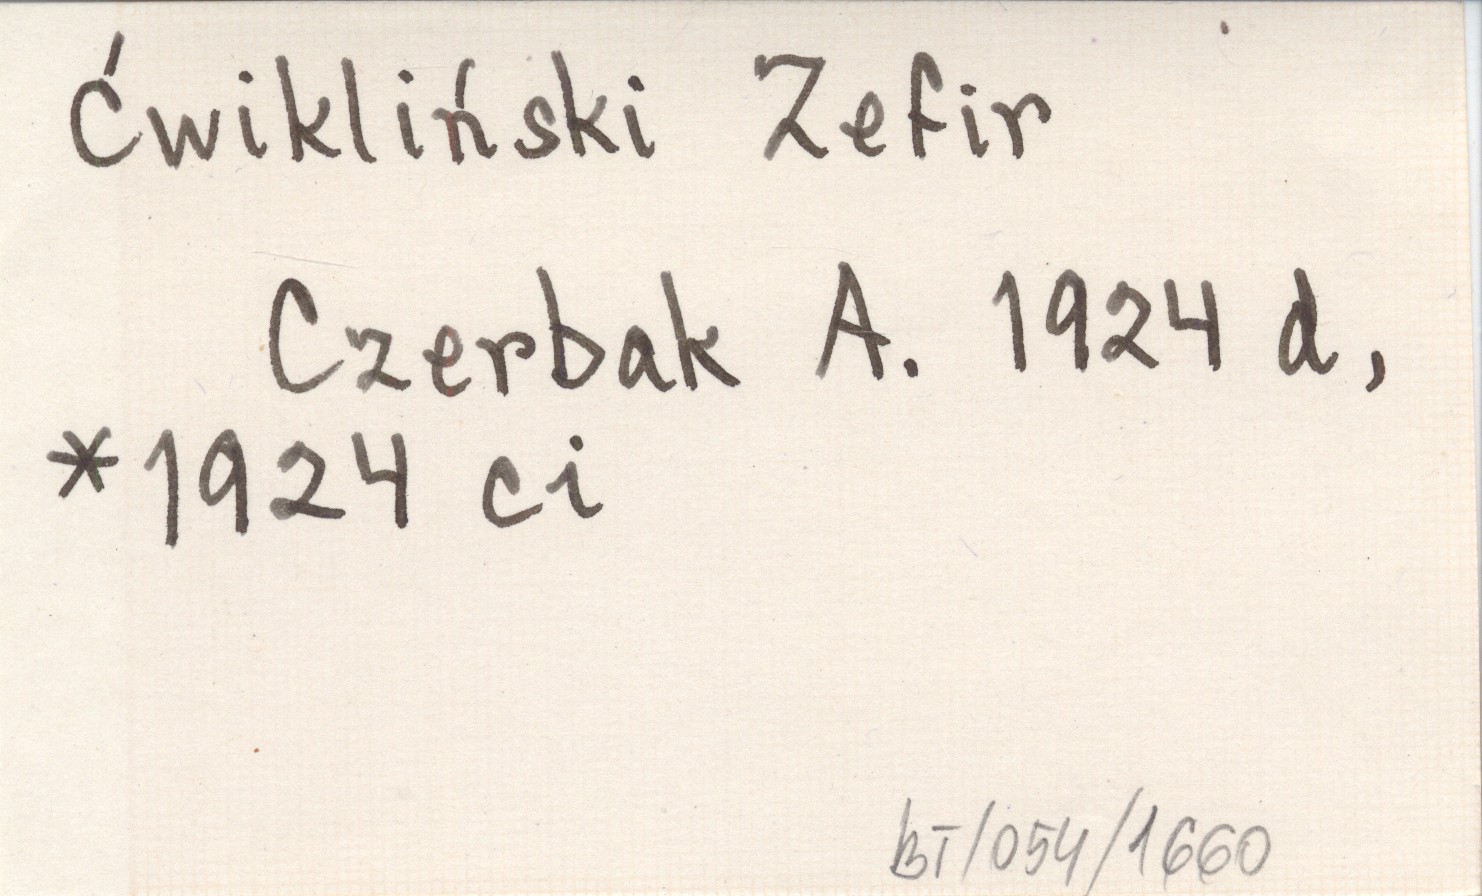 Ćwikliński Zefir
Czerbak A. 1924 d,
*1924 ci
BT/054/1660